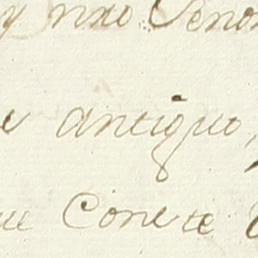 y nro Señor
e antiguo,
ue Conste